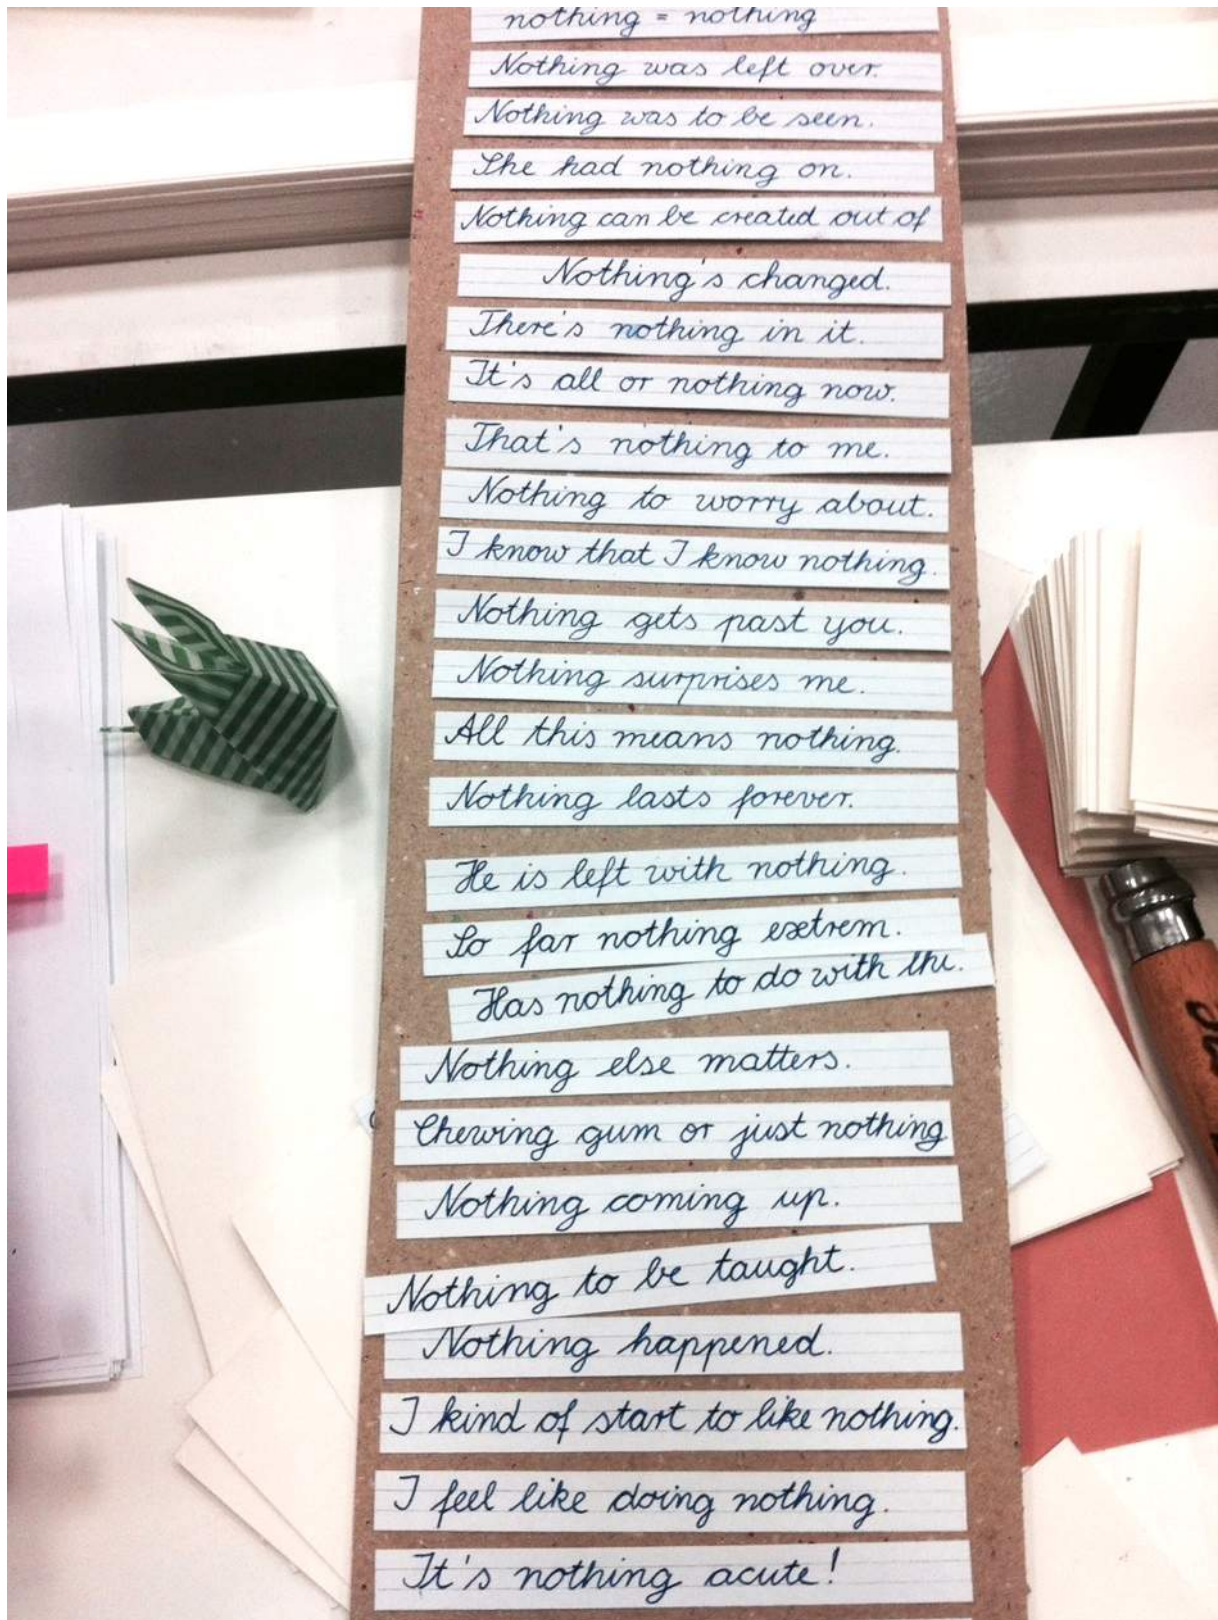 nothing = nothing
Nothing was left over.
Nothing was to be seen.
She had nothing on.
Nothing can be created out of
Nothing's changed.
There's nothing in it.
It's all or nothing now.
That's nothing to me.
Nothing to worry about.
I know that I know nothing.
Nothing gets past you.
Nothing surprises me.
All this means nothing.
Nothing lasts forever.
He is left with nothing.
So far nothing extrem.
Has nothing to do with the.
Nothing else matters.
Chewing gum or just nothing
Nothing coming up.
Nothing to be taught.
Nothing happened.
I kind of start to like nothing.
I feel like doing nothing.
It's nothing acute!